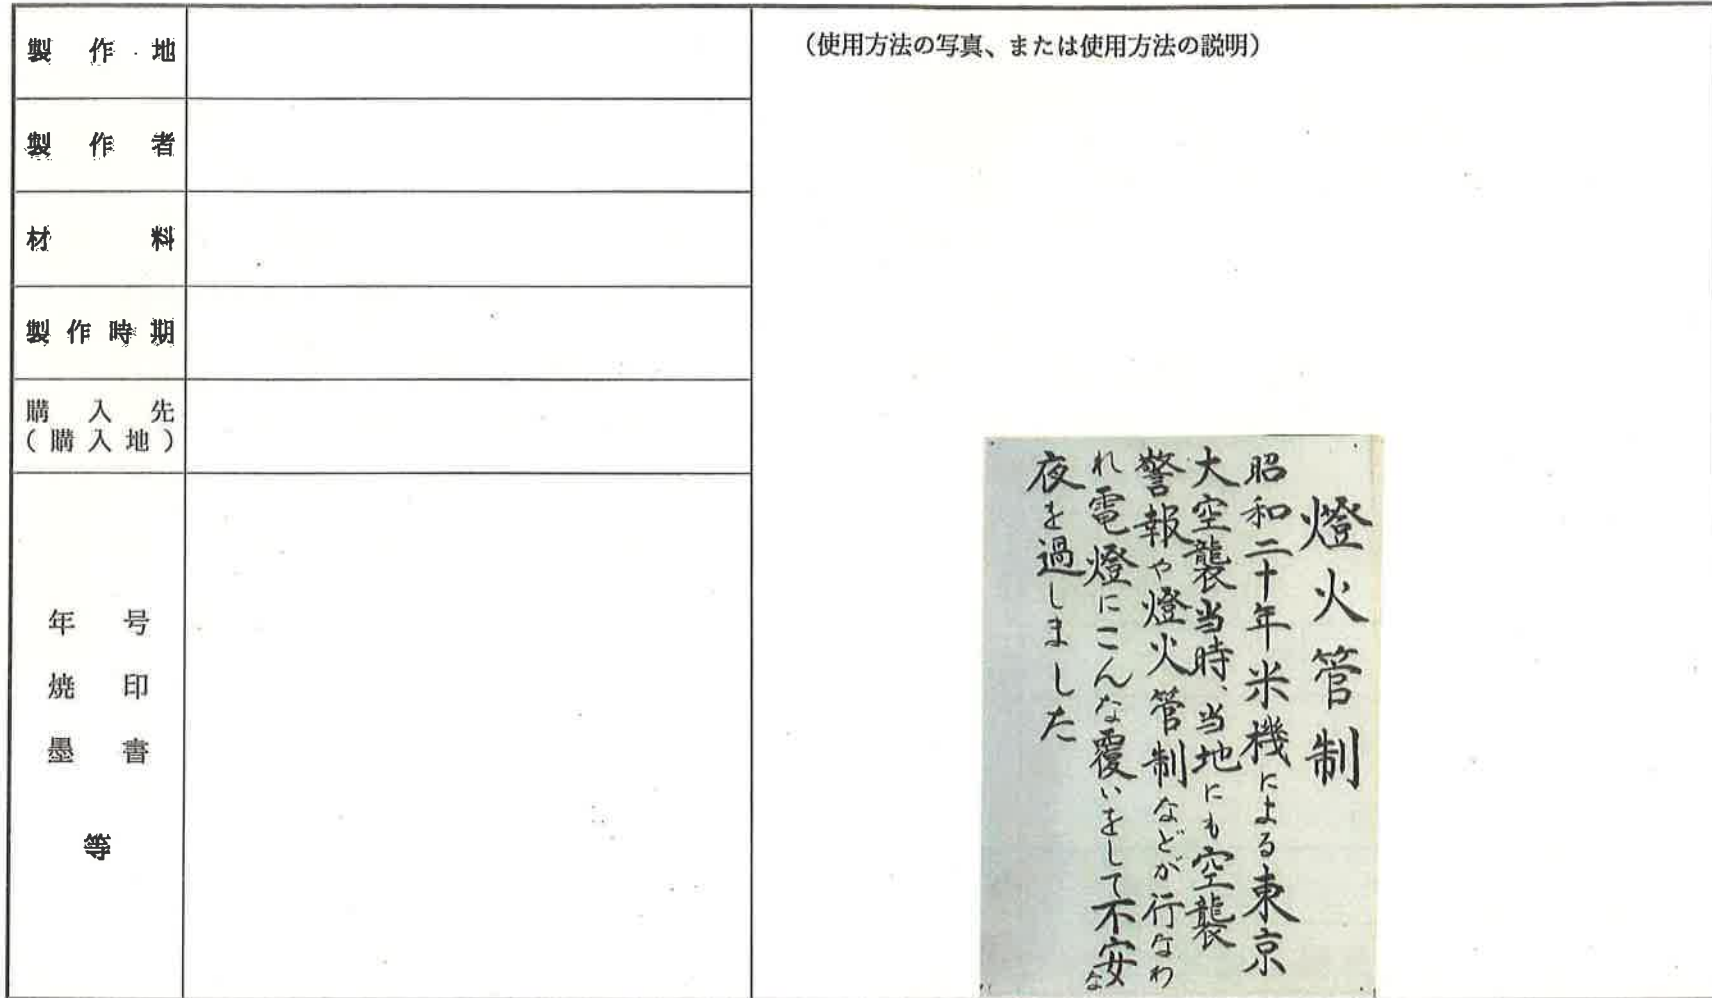 製作地
製作者
材料
製作時期
購入先
(購入地)
年号
焼印
墨書
等
(使用方法の写真、または使用方法の説明)
燈火管制
昭和二十年米機による東京
大空襲当時、当地にも空襲
警報や燈火管制などが行なわ
れ電燈にこんな覆いをして不安な
夜を過しました